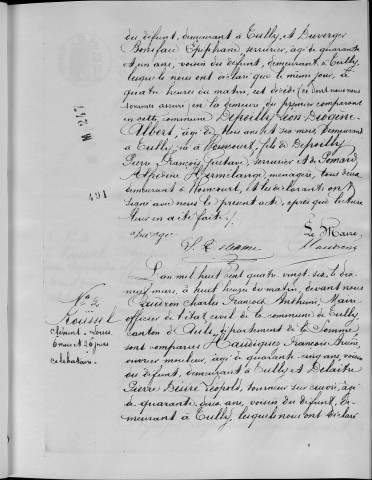 du défunt, demeurant à Tully, et Duverger
Boniface Epiphane serrurier, âgé de quarante
et un ans, voisin du défunt, demeurant à Tully,
lesquels nous ont déclaré que le même jour, à
quatre heures du matin, est décédé, et dont nous nous
sommes assuré, en la demeure du premier comparant
en cette commune Depoilly Léon Diogène
Albert, âgé de ans et six mois, demeurant
à Tully, né à fils de Depoilly
Pierre François Gustave, serrurier et de
Alphrédine Hermélange, ménagère, tous deux
demeurant à et les déclarants ont
signé avec nous le présent acte, après que lecture
leur en a été faite.
Duverger Le Maire
No 2
Roussel
Clément Louis
6 mois et 26 jours
célibataire
491
L'an mil huit cent quatre vingt six, le dix
neuf mars, à huit heures du matin, devant nous
Charles François Anthime, Maire
officier de l'état civil de la commune de Tully,
canton d'Ault, département de la Somme,
sont comparus Haudiquez François
ouvrier mouleur, âgé de quarante cinq ans voisin
du défunt, demeurant à Tully et Delattre
Pierre Désiré Léopold, tourneur sur cuivre, âgé
de quarante deux ans, voisin du défunt, de-
meurant à Tully, lesquels nous ont déclaré